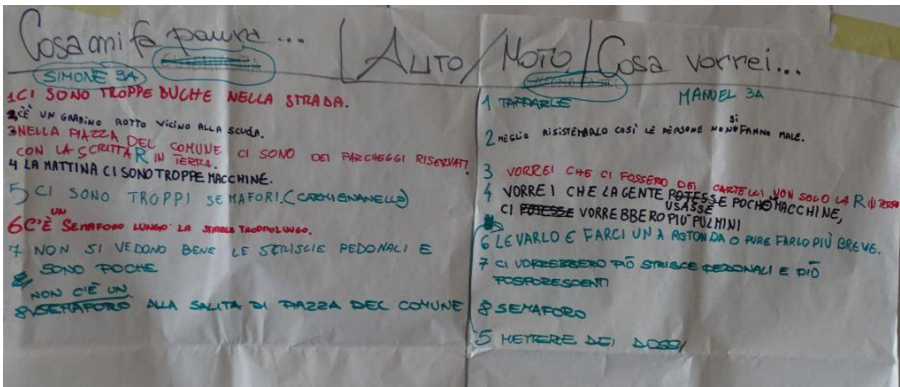 Cosa mi fa paura...
AUTO/MOTO
Cosa vorrei...
SIMONE 3A
1 CI SONO TROPPE BUCHE NELLA STRADA.
2 C'È UN GRADINO ROTTO VICINO ALLA SCUOLA.
3 NELLA PIAZZA DEL COMUNE CI SONO DEI PARCHEGGI RISERVATI
CON LA SCRITTA R IN TERRA.
4 LA MATTINA CI SONO TROPPE MACCHINE.
5 CI SONO TROPPI SEMAFORI. (CARMIGNANELLO)
6 C'È UN SEMAFORO LUNGO TROPPO LUNGO.
7 NON SI VEDONO BENE LE STRISCIE PEDONALI E
SONO POCHE
NON C'È UN
8 SEMAFORO ALLA SALITA DI PIAZZA DEL COMUNE
MANUEL 3A
1 TAPPARLE
2 MEGLIO RISISTEMARLO COSÌ LE PERSONE NON SI FANNO MALE.
3 VORREI CHE CI FOSSERO DEI CARTELLI NON SOLO LA R IN TERRA
4 VORREI CHE LA GENTE POTESSE POCHO MACCHINE,
USASSE
CI POTESSE VORREBBERO PIÙ PULMINI
6 LEVARLO E FARCI UN A ROTONDA O PURE FARLO PIÙ BREVE.
7 CI VORREBBERO PIÙ STRISCE PEDONALI E PIÙ
FOSFORESCENTI
8 SEMAFORO
5 METTERE DEI DOSSI